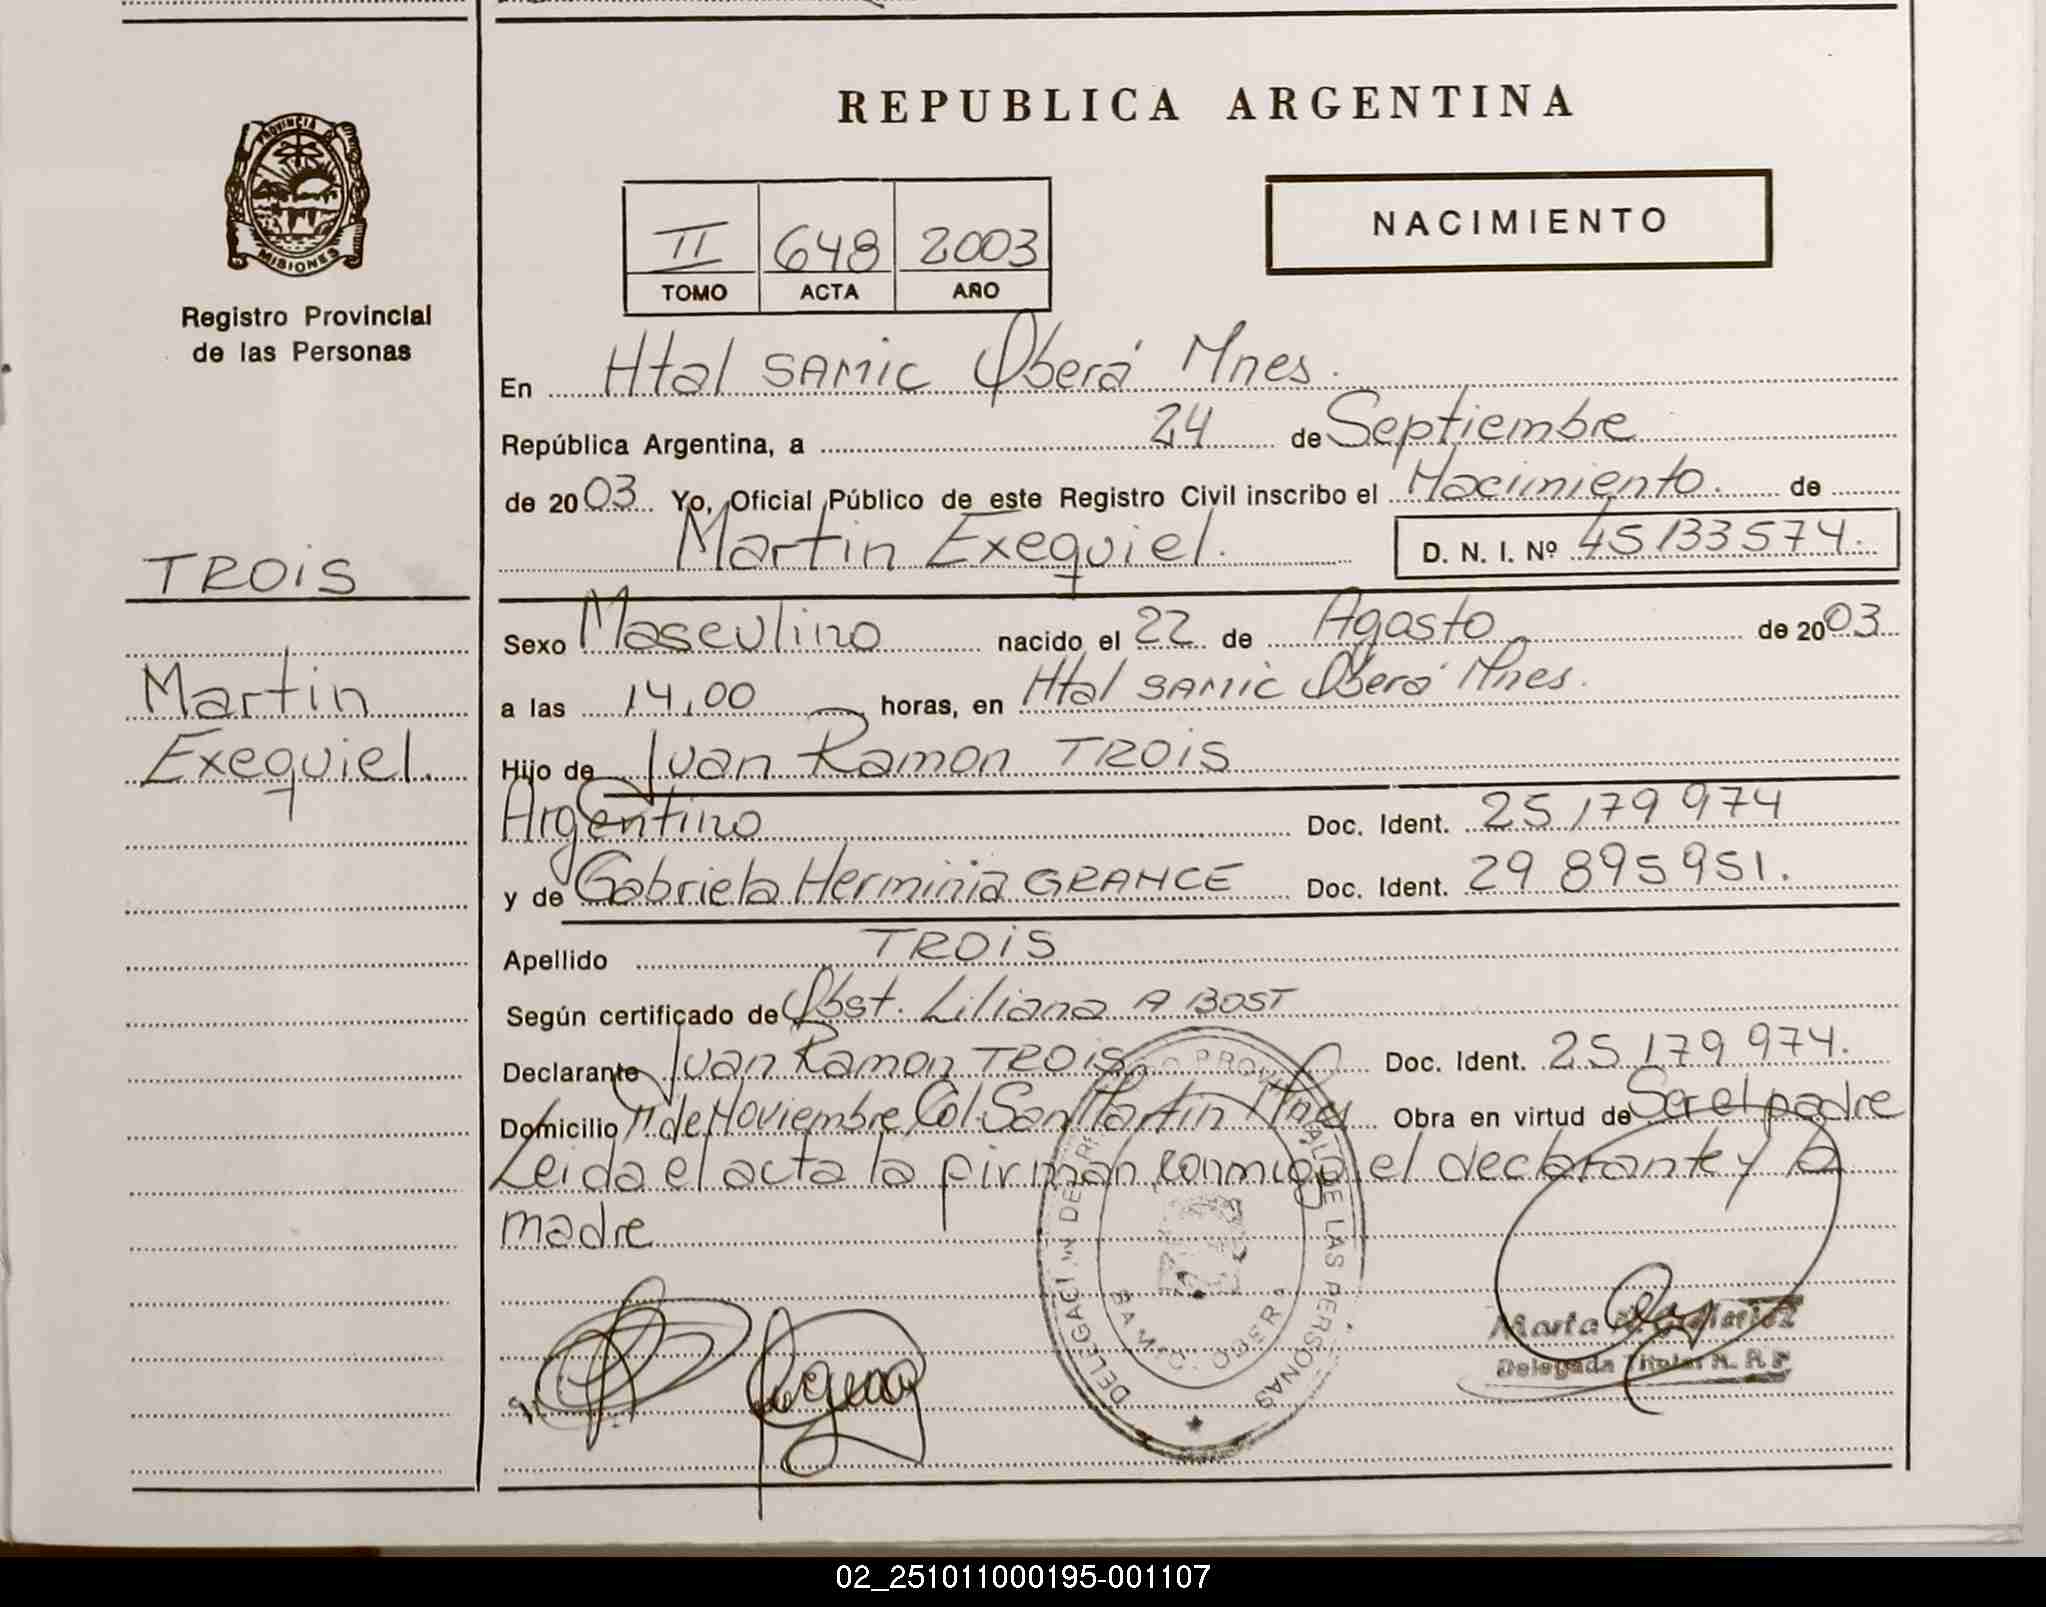 PROVINCIA D
MISIONES
Registro Provincial
de las Personas
TROIS
Martin
Exequiel.
REPUBLICA ARGENTINA
II 648 2003
TOMO ACTA AÑO
NACIMIENTO
En Htal SAMIC Oberá Mnes.
República Argentina, a 24 de Septiembre
de 2003 Yo, Oficial Público de este Registro Civil inscribo el Nacimiento. de
Martin Exequiel. D. N. I. Nº 45 133 574.
Sexo Masculino nacido el 22 de Agosto de 2003
a las 14,00 horas, en Htal SAMIC Oberá Mnes.
Hijo de Juan Ramon TROIS
Argentino Doc. Ident. 25 179 974
y de Gabriela Herminia GRANCE Doc. Ident. 29 895 951.
Apellido TROIS
Según certificado de Obst. Liliana A BOST
Declarante Juan Ramon TROIS Doc. Ident. 25 179 974.
Domicilio 11 de Noviembre, Col. San Martin Mnes Obra en virtud de Ser el padre
Leida el acta la firman conmigo el declarante y la
madre
DELEGACIÓN DE PROVINCIAL DE LAS PERSONAS
SAMIC. OBER
Marta
Delegada Titular R. P
02_251011000195-001107